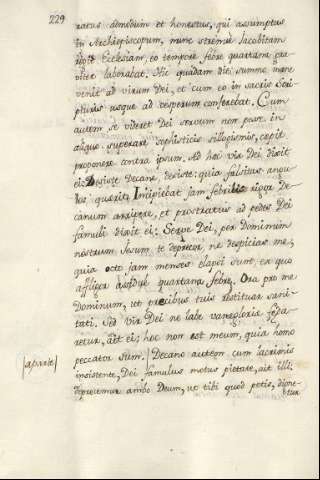 229
ratus admodum et honestus, qui assumptus
in Archiepiscopum, nunc strenue Jacobitam
regit Ecclesiam, eo tempore febre quartana gra-
viter laborabat. Hic quadam die summo mane
venit ad virum Dei, et cum eo in sacris Scri-
pturis usque ad vesperum conferebat. Cum
autem se videret Dei servum non posse in
aliquo superare sophisticis sillogismis, cepit
proponere contra ipsum. Ad hec vir Dei dixit
ei: Desiste Decane, desiste: quia falsitas angu-
los querit. Incipiebat jam febrilis rigor De-
canum arripere, et prostratus ad pedes Dei
famuli dixit ei: Serve Dei, per Dominum
nostrum Jesum te deprecor, ne despicias me,
quia octo jam menses elapsi sunt, ex quo
affligor assidue quartana febre. Ora pro me
Dominum, ut precibus tuis restituar sani-
tati. Sed vir Dei ne labe vanegloria feda-
retur, ait ei; hoc non est meum, quia homo
peccator sum. Decano autem cum lacrimis
[aparte]
insistente, Dei famulus motus pietate, ait illi:
deprecemur ambo Deum, ut tibi quod petis, digne-
tur